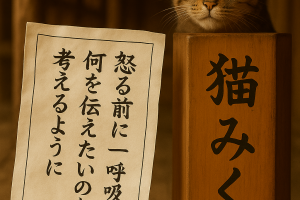 怒る前に一呼吸
何を伝えたいの
考えるように
猫みく